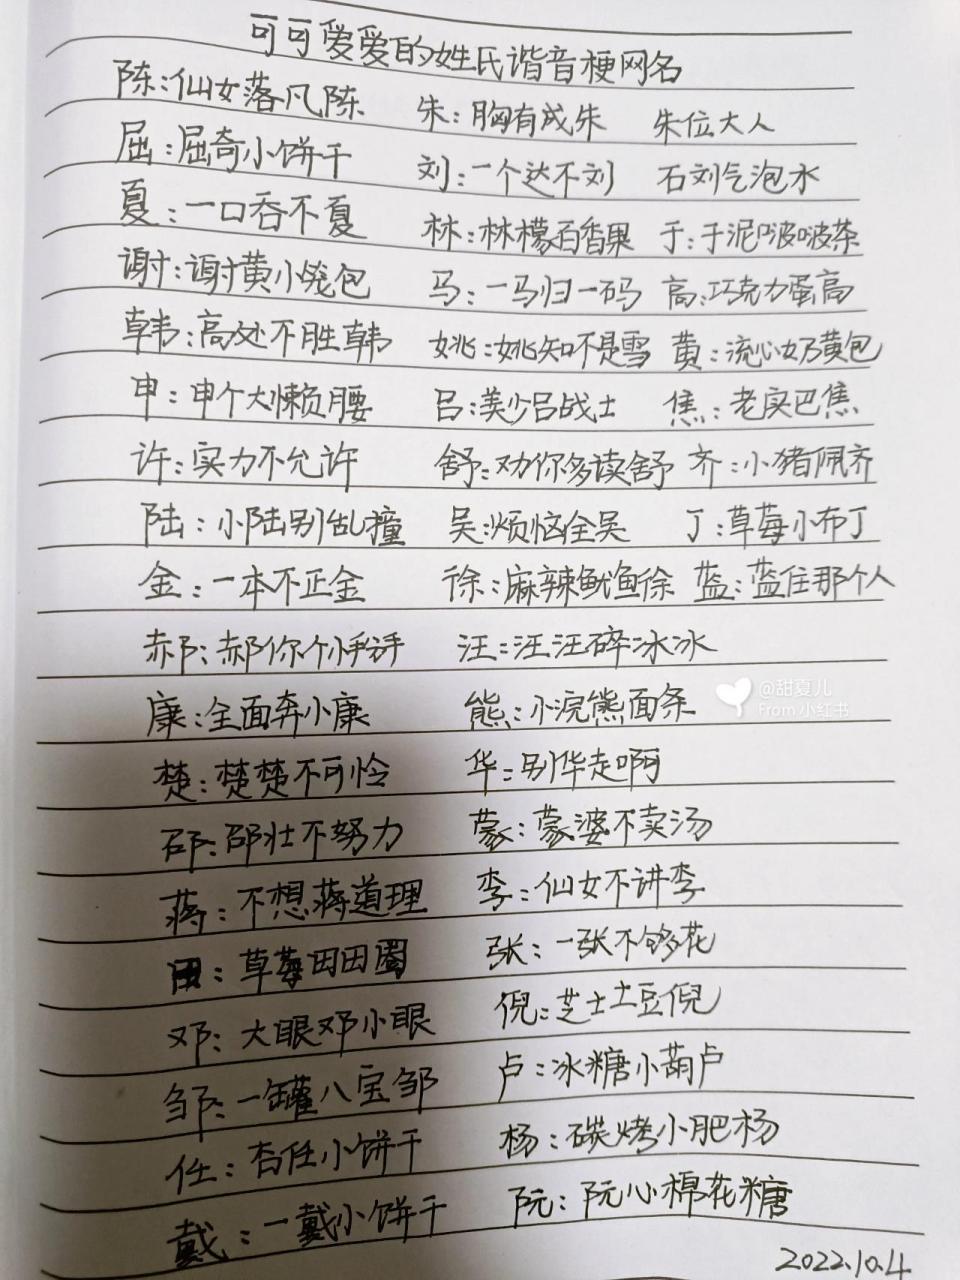 可可爱爱的姓氏谐音梗网名
陈:仙女落凡陈 朱:胸有成朱 朱位大人
屈:屈奇小饼干 刘:一个达不刘 石刘气泡水
夏:一口吞不夏 林:林檬百香果 于:于泥啵啵茶
谢:谢黄小笼包 马:一马归一码 高:巧克力蛋高
韩:高处不胜韩 姚:姚知不是雪 黄:流心奶黄包
申:申个大懒腰 吕:美少吕战士 焦:老实巴焦
许:实力不允许 舒:劝你多读舒 齐:小猪佩齐
陆:小陆别乱撞 吴:烦恼全吴 丁:草莓小布丁
金:一本不正金 徐:麻辣鱿鱼徐 蓝:蓝住那个人
郝:郝你个小手手 汪:汪汪碎冰冰
康:全面奔小康 熊:小浣熊面条
楚:楚楚不可怜 华:别华走啊
邵:邵壮不努力 蒙:蒙婆不卖汤
蒋:不想蒋道理 李:仙女不讲李
田:草莓田田圈 张:一张不够花
邓:大眼邓小眼 倪:芝士土豆倪
邹:一罐八宝邹 卢:冰糖小葫卢
任:杏任小饼干 杨:碳烤小肥杨
戴:一戴小饼干 阮:阮心棉花糖
2022.10.4
@甜夏儿
From 小红书